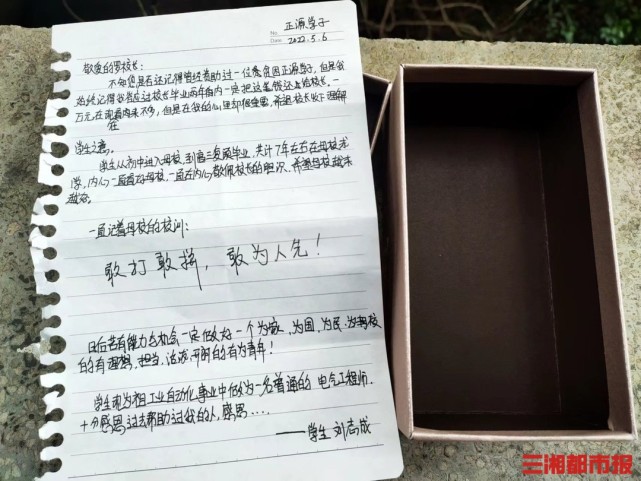 正源学子
No.
Date. 2022.5.6
敬爱的罗校长:
不知您是否还记得曾经资助过一位贫困正源学子,但是我
始终记得我答应过校长毕业两年内一定把这笔钱还给校长.一
万元在现看肉来不多,但是在我的心里却很宝贵,希望校长收下理解
在
学生之意。
学生从初中进入母校,到高三复读毕业,共计7年左右在母校求
学,内心一直看好母校,一直在内心敬佩校长的胆识,希望母校越来
越好。
一直记着母校的校训:
敢打敢拼,敢为人先!
日后若有能力与机会一定做好一个为家、为国、为民、为母校
的有理想,担当,活泼开朗的有为青年!
学生现为祖工业自动化事业中做为一名普通的电气工程师.
十分感恩过去帮助过我的人,感恩....
——学生 刘志成
三湘都市报